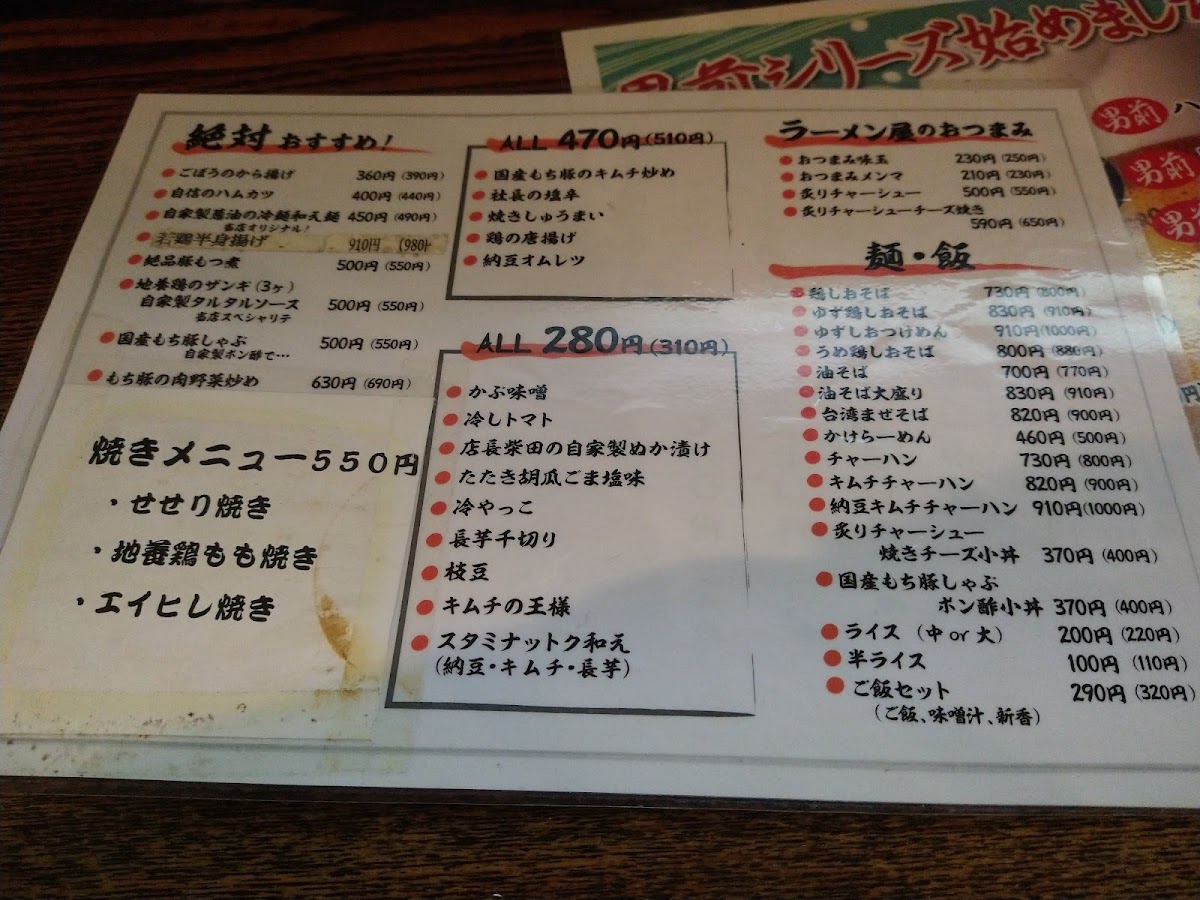 男前シリーズ始めまし
男前
男前
男
絶対おすすめ!
ごぼうのから揚げ 360円(390円)
自信のハムカツ 400円(440円)
自家製葱油の冷麺和え麺 450円(490円)
当店オリジナル!
若鶏半身揚げ 910円 (980
絶品豚もつ煮 500円(550円)
地養鶏のザンギ(3ヶ)
自家製タルタルソース 500円(550円)
当店スペシャリテ
国産もち豚しゃぶ 500円(550円)
自家製ポン酢で…
もち豚の肉野菜炒め 630円(690円)
焼きメニュー550円
・せせり焼き
・地養鶏もも焼き
・エイヒレ焼き
ALL 470円(510円)
国産もち豚のキムチ炒め
社長の塩辛
焼きしゅうまい
鶏の唐揚げ
納豆オムレツ
ALL 280円(310円)
かぶ味噌
冷しトマト
店長柴田の自家製ぬか漬け
たたき胡瓜ごま塩味
冷やっこ
長芋千切り
枝豆
キムチの王様
スタミナットク和え
(納豆・キムチ・長芋)
ラーメン屋のおつまみ
おつまみ味玉 230円(250円)
おつまみメンマ 210円(230円)
炙りチャーシュー 500円(550円)
炙りチャーシューチーズ焼き
590円(650円)
麺・飯
鶏しおそば 730円(800円)
ゆず鶏しおそば 830円(910円)
ゆずしおつけめん 910円(1000円)
うめ鶏しおそば 800円(880円)
油そば 700円(770円)
油そば大盛り 830円(910円)
台湾まぜそば 820円(900円)
かけらーめん 460円(500円)
チャーハン 730円(800円)
キムチチャーハン 820円(900円)
納豆キムチチャーハン 910円(1000円)
炙りチャーシュー
焼きチーズ小丼 370円(400円)
国産もち豚しゃぶ
ポン酢小丼 370円(400円)
ライス(中or大) 200円(220円)
半ライス 100円(110円)
ご飯セット 290円(320円)
(ご飯、味噌汁、新香)